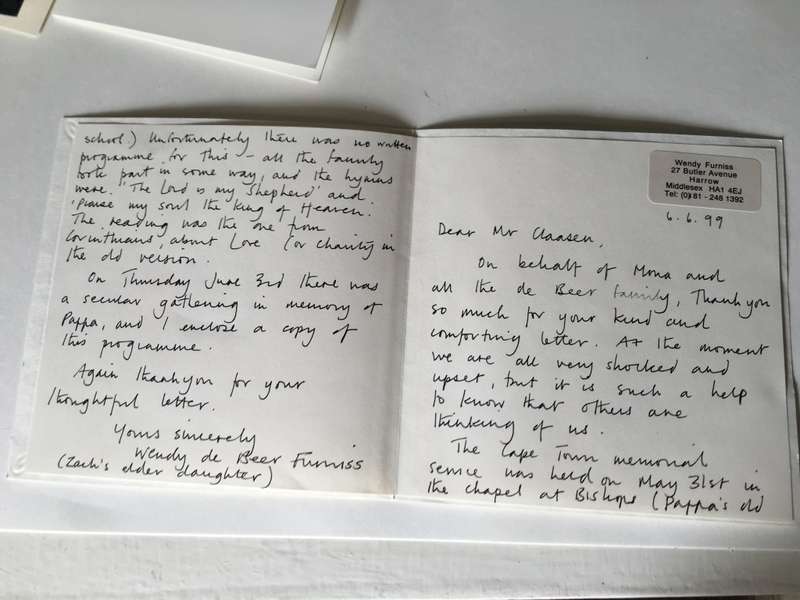 Wendy Furniss
27 Butler Avenue
Harrow
Middlesex HA1 4EJ
Tel: (0)81 - 248 1392
6.6.99
Dear Mr Claasen,
On behalf of Mona and
all the de Beer family, Thankyou
so much for your kind and
comforting letter. At the moment
we are all very shocked and
upset, but it is such a help
to know that others are
thinking of us.
The Cape Town memorial
service was held on May 31st in
the chapel at Bishops (Pappa's old
school.) Unfortunately there was no written
programme for this - all the family
took part in some way, and the hymns
were 'The Lord is my shepherd' and
'Praise my soul the King of Heaven.
The reading was the one from
Corinthians, about Love (or charity in
the old version.
On Thursday June 3rd there was
a secular gathering in memory of
Pappa, and I enclose a copy of
this programme.
Again thankyou for your
thoughtful letter.
Yours sincerely
Wendy de Beer Furniss
(Zach's elder daughter)